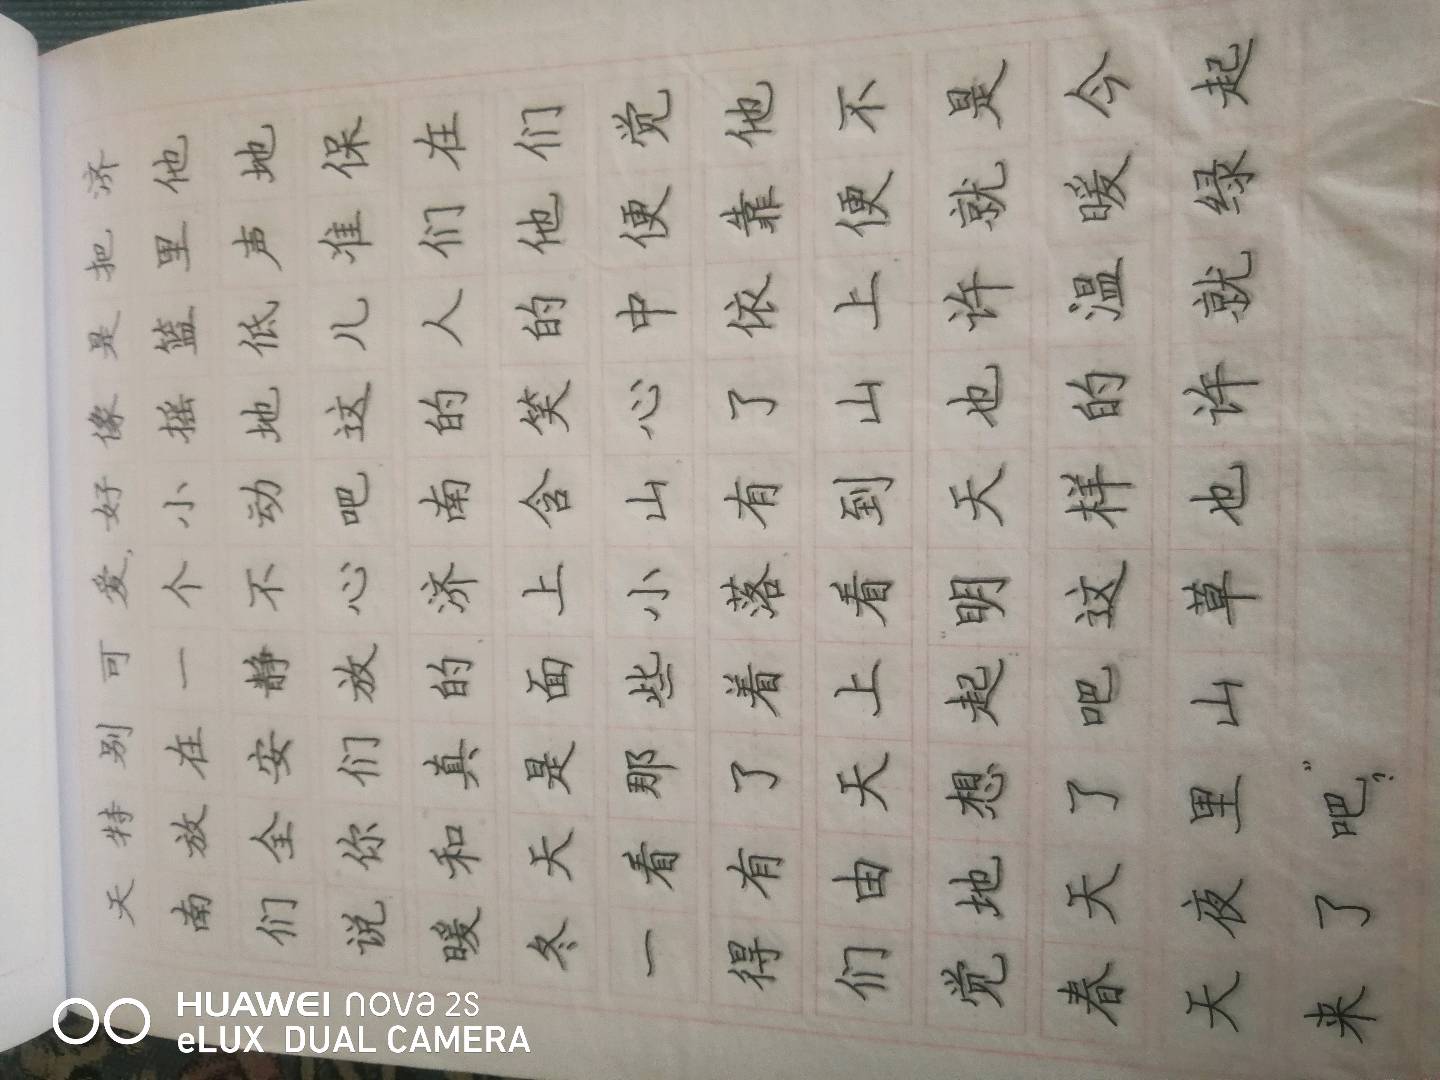 天特别可爱,好像是把济
南放在一个小摇篮里他
们全安静不动地低声地
说你们放心吧这儿准保
暖和真的、济南的人们在
冬天是面上含笑的他们
一看那些小山、心中便觉
得有了着落、有了依靠他
们由天上看到山上便不
觉地想起:“明天也许就是
春天了吧这样的温暖今
天夜里山草也许就绿起
来了吧?”
HUAWEI nova 2S
eLUX DUAL CAMERA